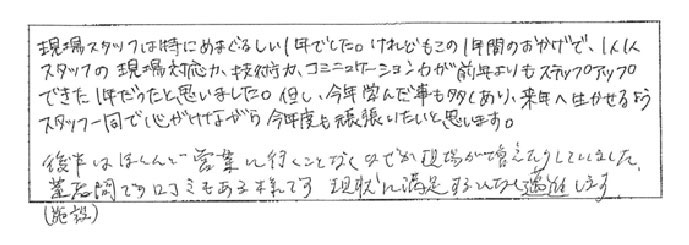 現場スタッフは特にめまぐるしい1年でした。けれどもこの1年間のおかげで、1人1人
スタッフの現場対応力、技術力、コミニュケーション力が前年よりもステップアップ
できた1年だったと思いました。但し、今年学んだ事も多くあり、来年へ生かせるよう
スタッフ一同で心がけながら今年度も頑張りたいと思います。
後半はほとんど営業に行くことなく 現場が増えたりしていました。
業者間で口コミもある様です 現状に満足する 邁進します
(施設)